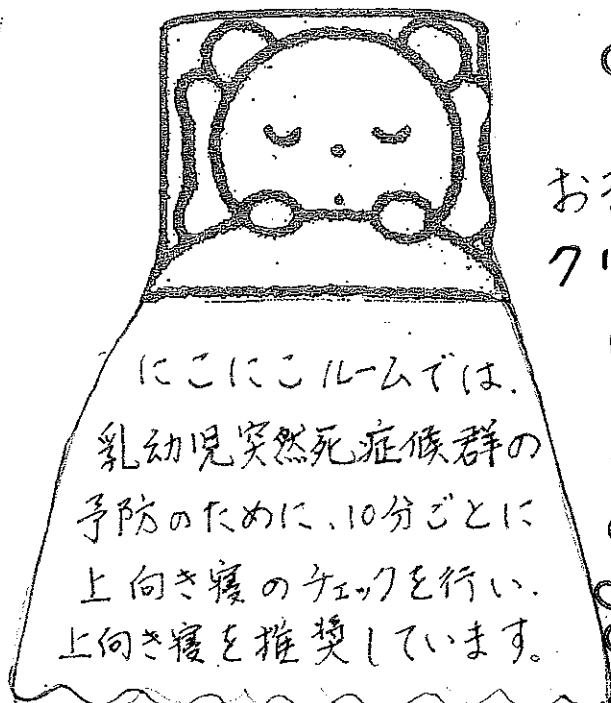 にこにこルームでは、
乳幼児突然死症候群の
予防のために、10分ごとに
上向き寝のチェックを行い、
上向き寝を推奨しています。
お
クリ